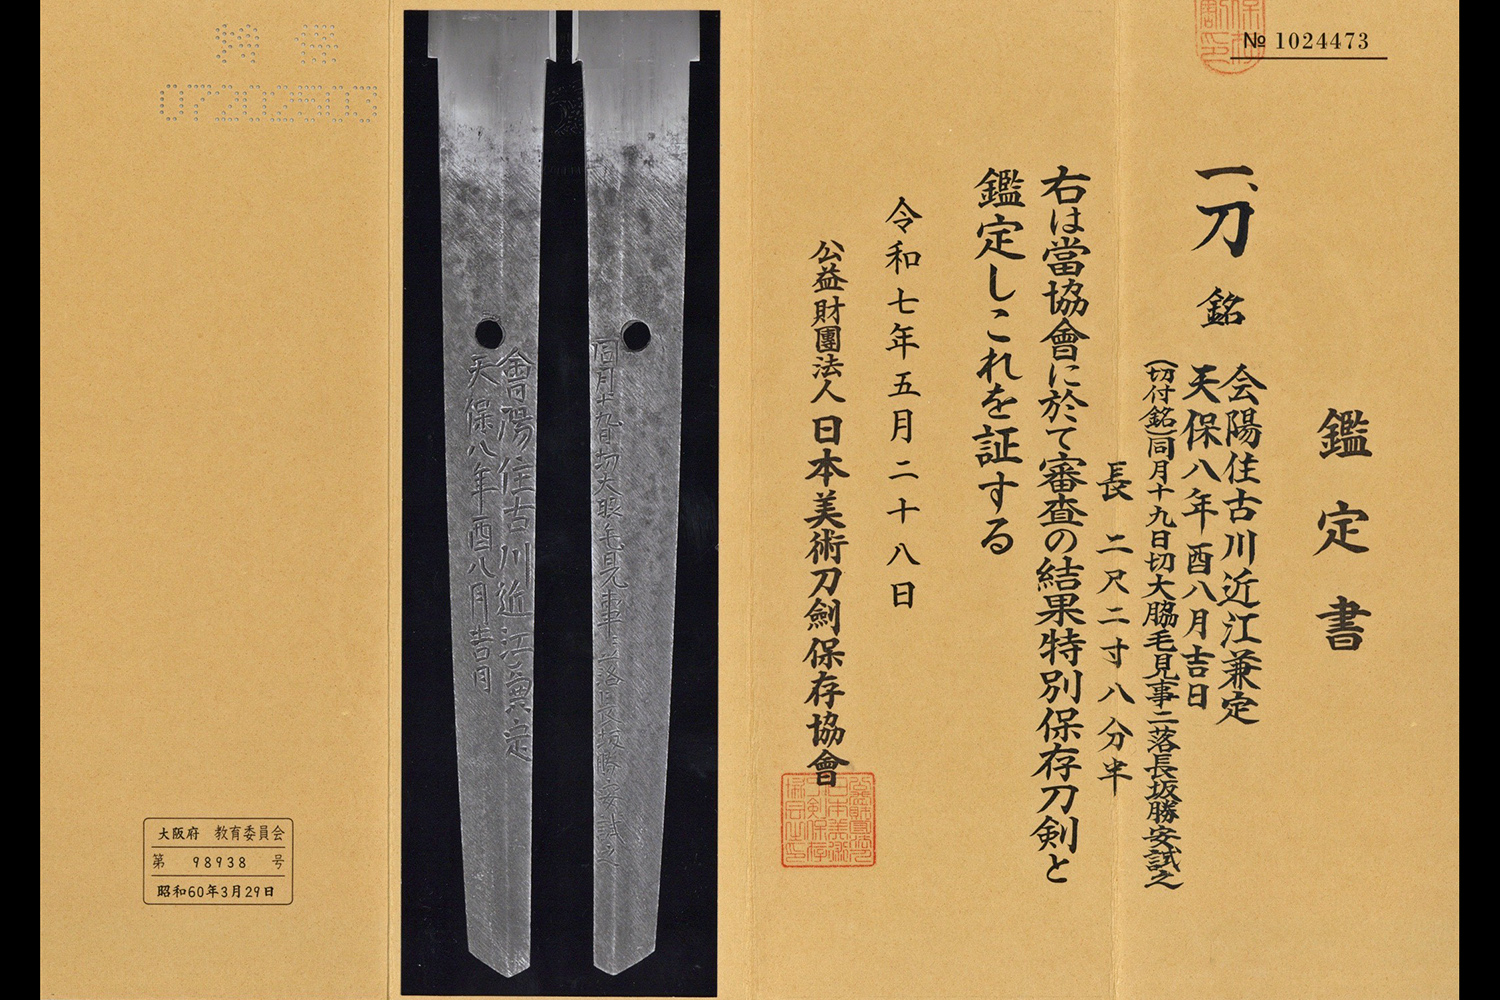 № 1024473
鑑定書
一、刀 銘 会陽住古川近江兼定
天保八年酉八月吉日
(切付銘)同月十九日切大脇毛見事ニ落長坂勝安試之
長 二尺二寸八分半
右は當協會に於て審査の結果特別保存刀剣と
鑑定しこれを証する
令和七年五月二十八日
公益財團法人日本美術刀劍保存協會
同月十九日切大脇毛見事ニ落長坂勝安試之
會陽住古川近江兼定
天保八年酉八月吉日
07202503
大阪府 教育委員会
第 98938 号
昭和60年3月29日